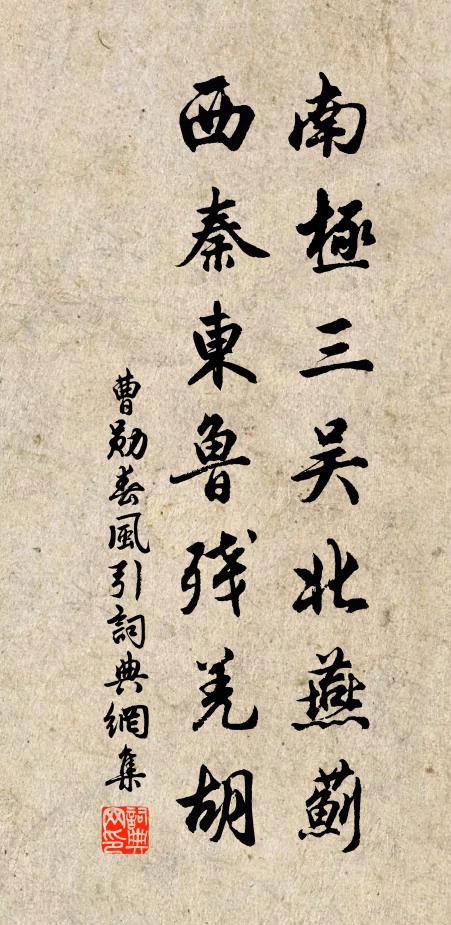 南極三吴北燕薊
西秦東魯残羌胡
曹勛春風引詞典網集
詞典網印